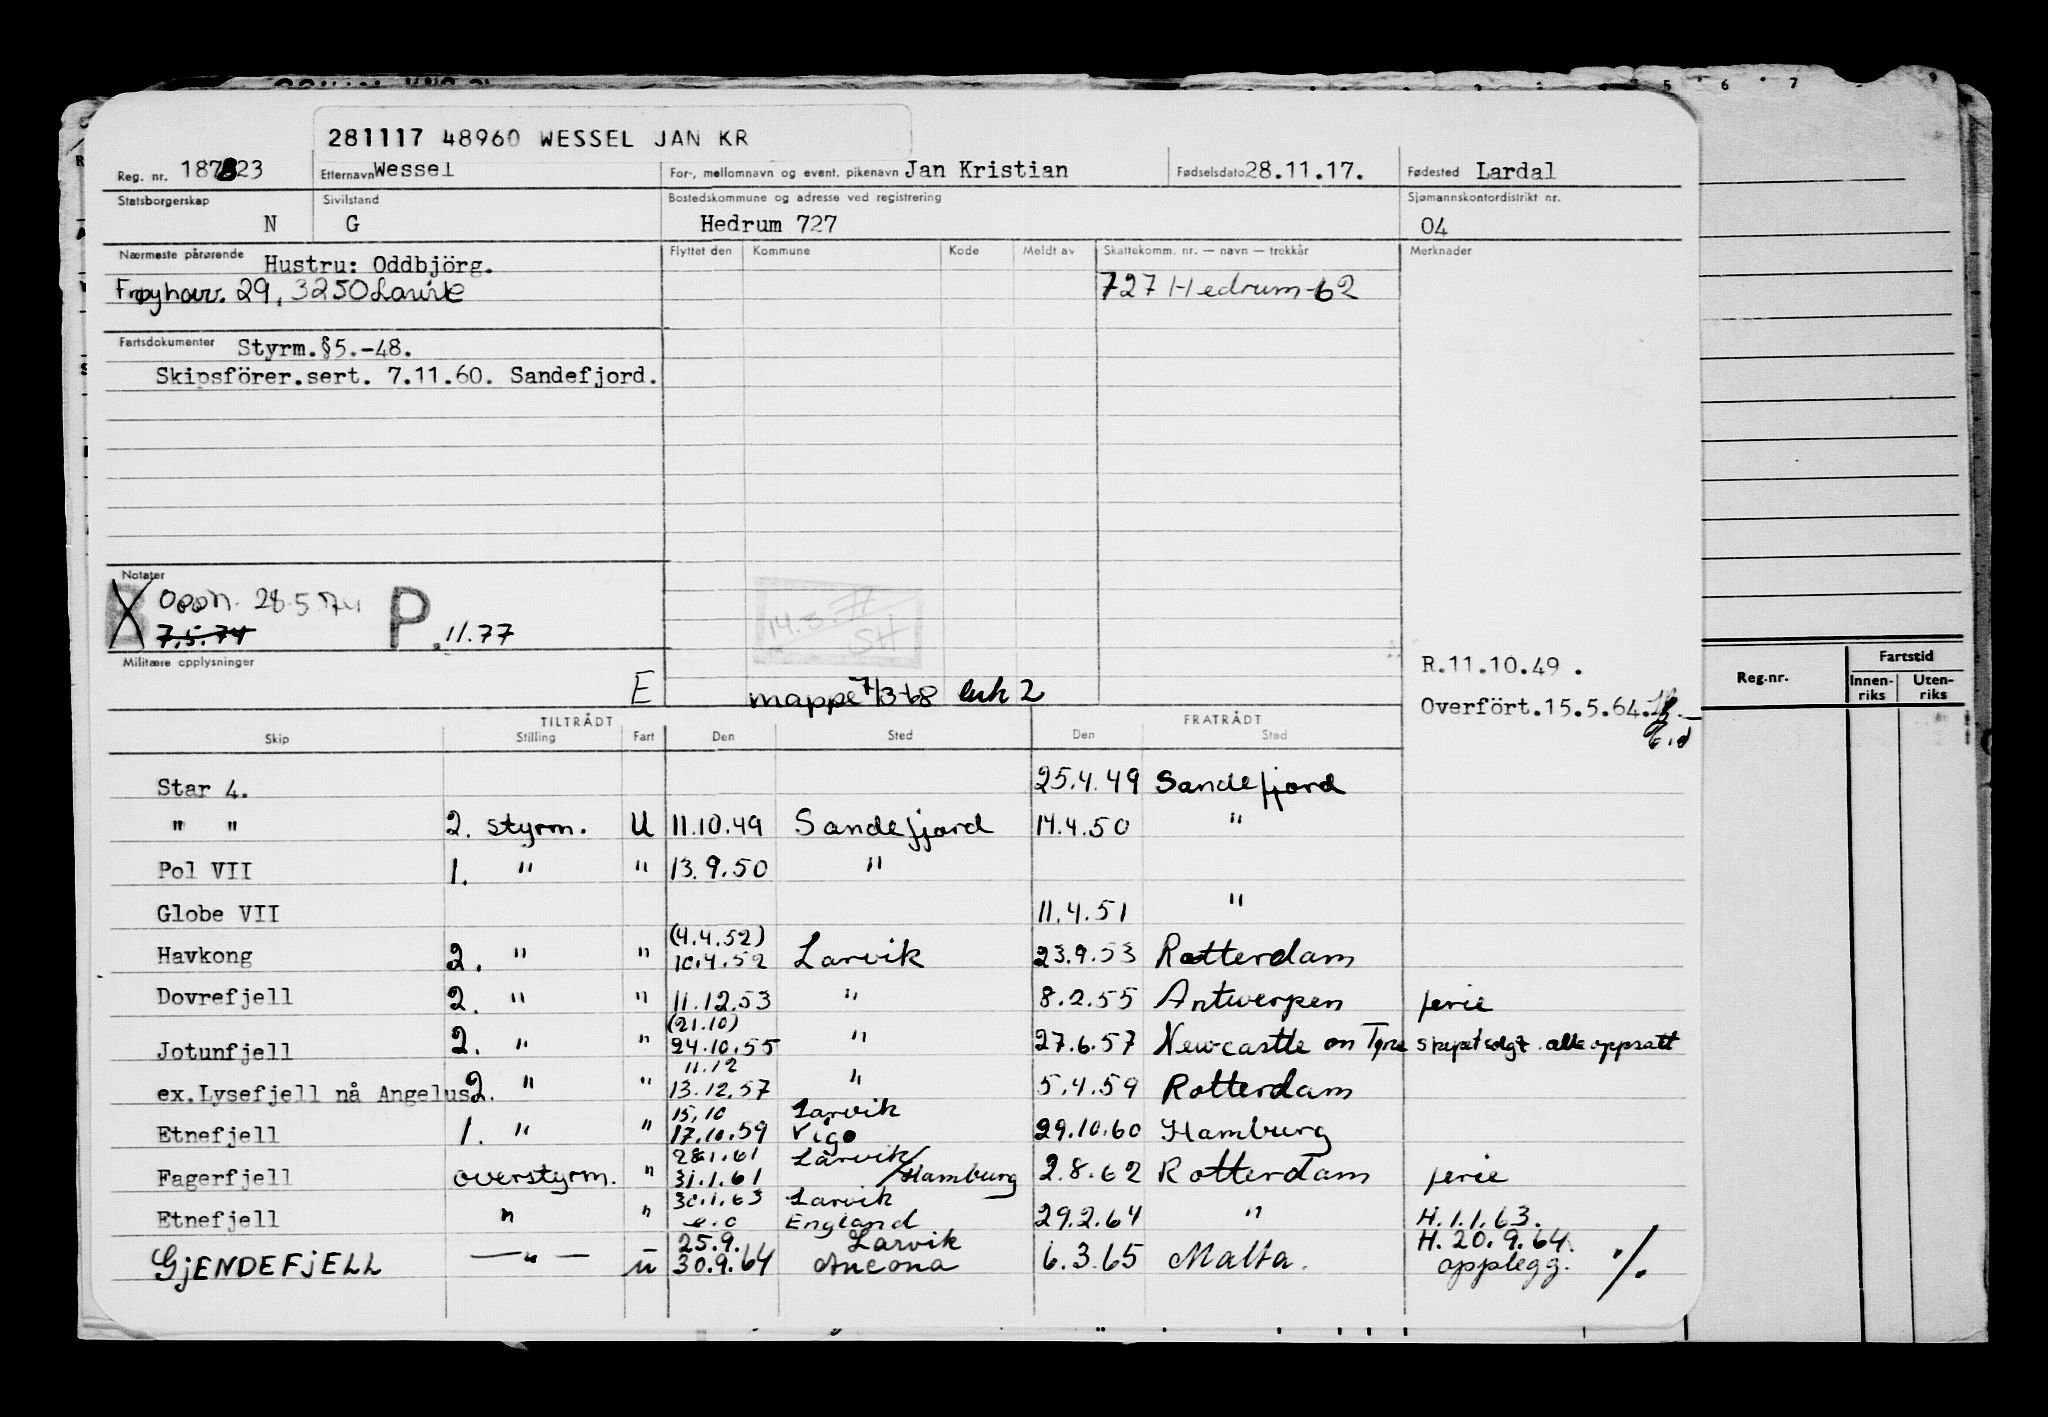 281117 48960 WESSEL JAN KR
Reg. nr. 187823 Etternavn Wessel For-, mellomnavn og event. pikenavn Jan Kristian Fødselsdato 28.11.17. Fødested Lardal
Statsborgerskap Sivilstand Bostedskommune og adresse ved registrering Sjømannskontordistrikt nr.
N G Hedrum 727 04
Nærmeste pårørende Hustru: Oddbjörg. Flyttet den Kommune Kode Meldt av Skattekomm. nr. — navn — trekkår Merknader
29, 3250 Larvik 727 Hedrum-62
Fartsdokumenter Styrm.§5.-48.
Skipsförer.sert. 7.11.60. Sandefjord.
Notater
Oppn. 28.5.74 P 14.3.77
7.5.74 .11.77 SH
Militære opplysninger R.11.10.49 .
E mappe 7/3-68 luk 2 Overfört.15.5.64.
TILTRÅDT FRATRÅDT
Skip Stilling Fart Den Sted Den Sted
Star 4. 25.4.49 Sandefjord
" " 2. styrm. U 11.10.49 Sandefjord 14.4.50 "
Pol VII 1. " " 13.9.50 "
Globe VII 11.4.51 "
(4.4.52)
Havkong 2. " " 10.4.52 Larvik 23.9.53 Rotterdam
Dovrefjell 2. " " 11.12.53 " 8.2.55 Antwerpen ferie
(21.10)
Jotunfjell 2. " " 24.10.55 " 27.6.57 Newcastle on Tyne skipet solgt. alle oppsatt
11.12
ex.Lysefjell nå Angelus 2. " " 13.12.57 " 5.4.59 Rotterdam
15.10 Larvik
Etnefjell 1. " " 17.10.59 Vigo 29.10.60 Hamburg
28.1.61 Larvik/
Fagerfjell overstyrm. " 31.1.61 /Hamburg 2.8.62 Rotterdam ferie
30.1.63 Larvik
Etnefjell " " England 29.2.64 " H. 1.1.63.
25.9. Larvik H. 20.9.64.
GJENDEFJELL —"— u 30.9.64 Ancona 6.3.65 Malta. opplegg. ./.
5 6 7
Reg.nr. Fartstid
Innen-riks Uten-riks